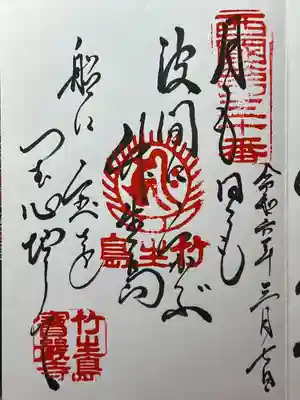 西國第三十番
令和六年三月七日
月も日も
波間に浮ぶ
竹生島
船に宝を
つむ心地して
竹生島
竹生島
寳嚴寺